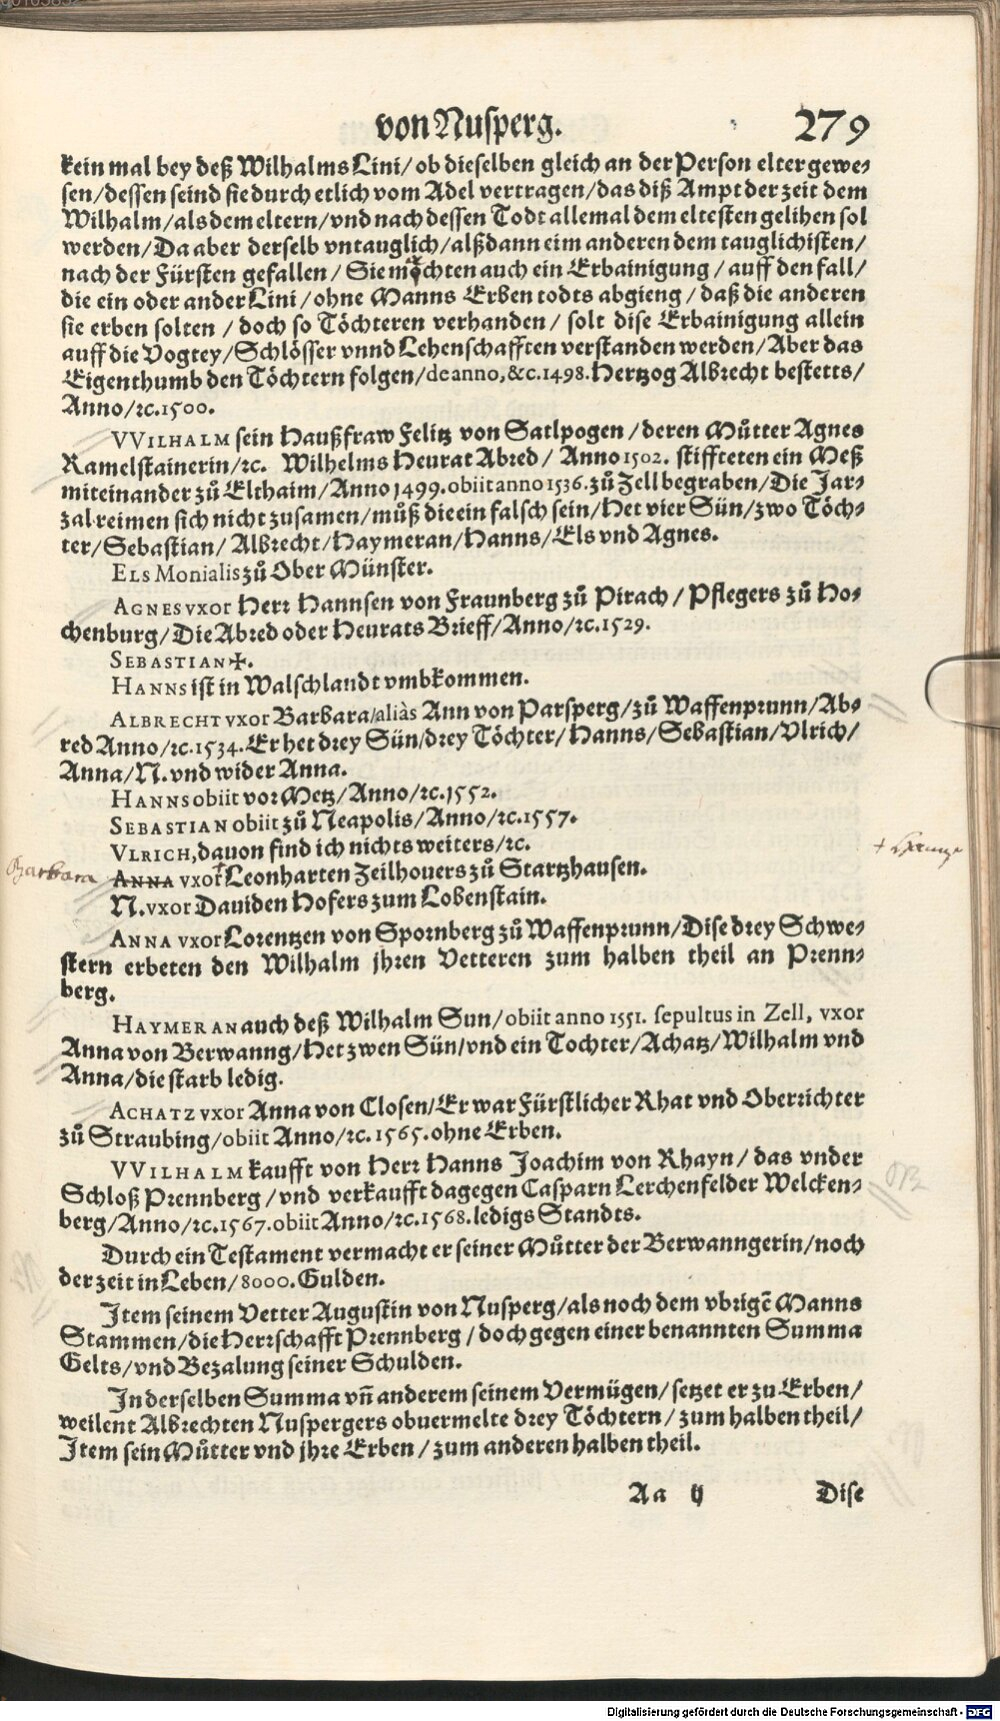 von Nusperg. 279
kein mal bey deß Wilhalms Lini/ ob dieselben gleich an der Person elter gewe-
sen/ dessen seind sie durch etlich vom Adel vertragen/ das diß Ampt der zeit dem
Wilhalm/ als dem eltern/ vnd nach dessen Todt allemal dem eltesten gelihen sol
werden/ Da aber derselb vntauglich/ alßdann eim anderen dem tauglichisten/
nach der Fürsten gefallen/ Sie möchten auch ein Erbainigung/ auff den fall/
die ein oder ander Lini/ ohne Manns Erben todts abgieng/ daß die anderen
sie erben solten/ doch so Töchteren verhanden/ solt dise Erbainigung allein
auff die Vogtey/ Schlösser vnnd Lehenschafften verstanden werden/ Aber das
Eigenthumb den Töchtern folgen/ de anno, &c. 1498. Hertzog Albrecht bestetts/
Anno/ ꝛc. 1500.
VVILHALM sein Haußfraw Felitz von Satlpogen/ deren Můtter Agnes
Ramelstainerin/ ꝛc. Wilhelms Heurat Abred/ Anno 1502. stiffteten ein Meß
miteinander zů Elthaim/ Anno 1499. obiit anno 1536. zů Zell begraben/ Die Jar-
zal reimen sich nicht zusamen/ můß die ein falsch sein/ Het vier Sün/ zwo Töch-
ter/ Sebastian/ Albrecht/ Haymeran/ Hanns/ Els vnd Agnes.
ELS Monialis zů Ober Münster.
AGNES vxor Herr Hannsen von Fraunberg zů Pirach/ Pflegers zů Ho-
chenburg/ Die Abred oder Heurats Brieff/ Anno/ ꝛc. 1529.
SEBASTIAN ✠.
HANNS ist in Walschlandt vmbkommen.
ALBRECHT vxor Barbara/ aliàs Ann von Parsperg/ zů Waffenprunn/ Ab-
red Anno/ ꝛc. 1534. Er het drey Sün/ drey Töchter/ Hanns/ Sebastian/ Vlrich/
Anna/ N. vnd wider Anna.
HANNS obiit vor Metz/ Anno/ ꝛc. 1552.
SEBASTIAN obiit zů Neapolis/ Anno/ ꝛc. 1557.
VLRICH, dauon find ich nichts weiters/ ꝛc.
Barbara ANNA vxor Leonharten Zeilhouers zů Startzhausen.
N. vxor Dauiden Hofers zum Lobenstain.
ANNA vxor Lorentzen von Spornberg zů Waffenprunn/ Dise drey Schwe-
stern erbeten den Wilhalm jhren Vetteren zum halben theil an Prenn-
berg.
HAYMERAN auch deß Wilhalm Sun/ obiit anno 1551. sepultus in Zell, vxor
Anna von Berwanng/ Het zwen Sün/ vnd ein Tochter/ Achatz/ Wilhalm vnd
Anna/ die starb ledig.
ACHATZ vxor Anna von Closen/ Er war Fürstlicher Rhat vnd Oberrichter
zů Straubing/ obiit Anno/ ꝛc. 1565. ohne Erben.
VVILHALM kaufft von Herr Hanns Joachim von Rhayn/ das vnder
Schloß Prennberg/ vnd verkaufft dagegen Casparn Lerchenfelder Welcken-
berg/ Anno/ ꝛc. 1567. obiit Anno/ ꝛc. 1568. ledigs Standts.
Durch ein Testament vermacht er seiner Můtter der Berwanngerin/ noch
der zeit in Leben/ 8000. Gulden.
Jtem seinem Vetter Augustin von Nusperg/ als noch dem vbrigẽ Manns
Stammen/ die Herrschafft Prennberg/ doch gegen einer benannten Summa
Gelts/ vnd Bezalung seiner Schulden.
In derselben Summa vñ anderem seinem Vermügen/ setzet er zu Erben/
weilent Albrechten Nuspergers obuermelte drey Töchtern/ zum halben theil/
Jtem sein Můtter vnd jhre Erben/ zum anderen halben theil.
Aa ij Dise
Digitalisierung gefördert durch die Deutsche Forschungsgemeinschaft - DFG